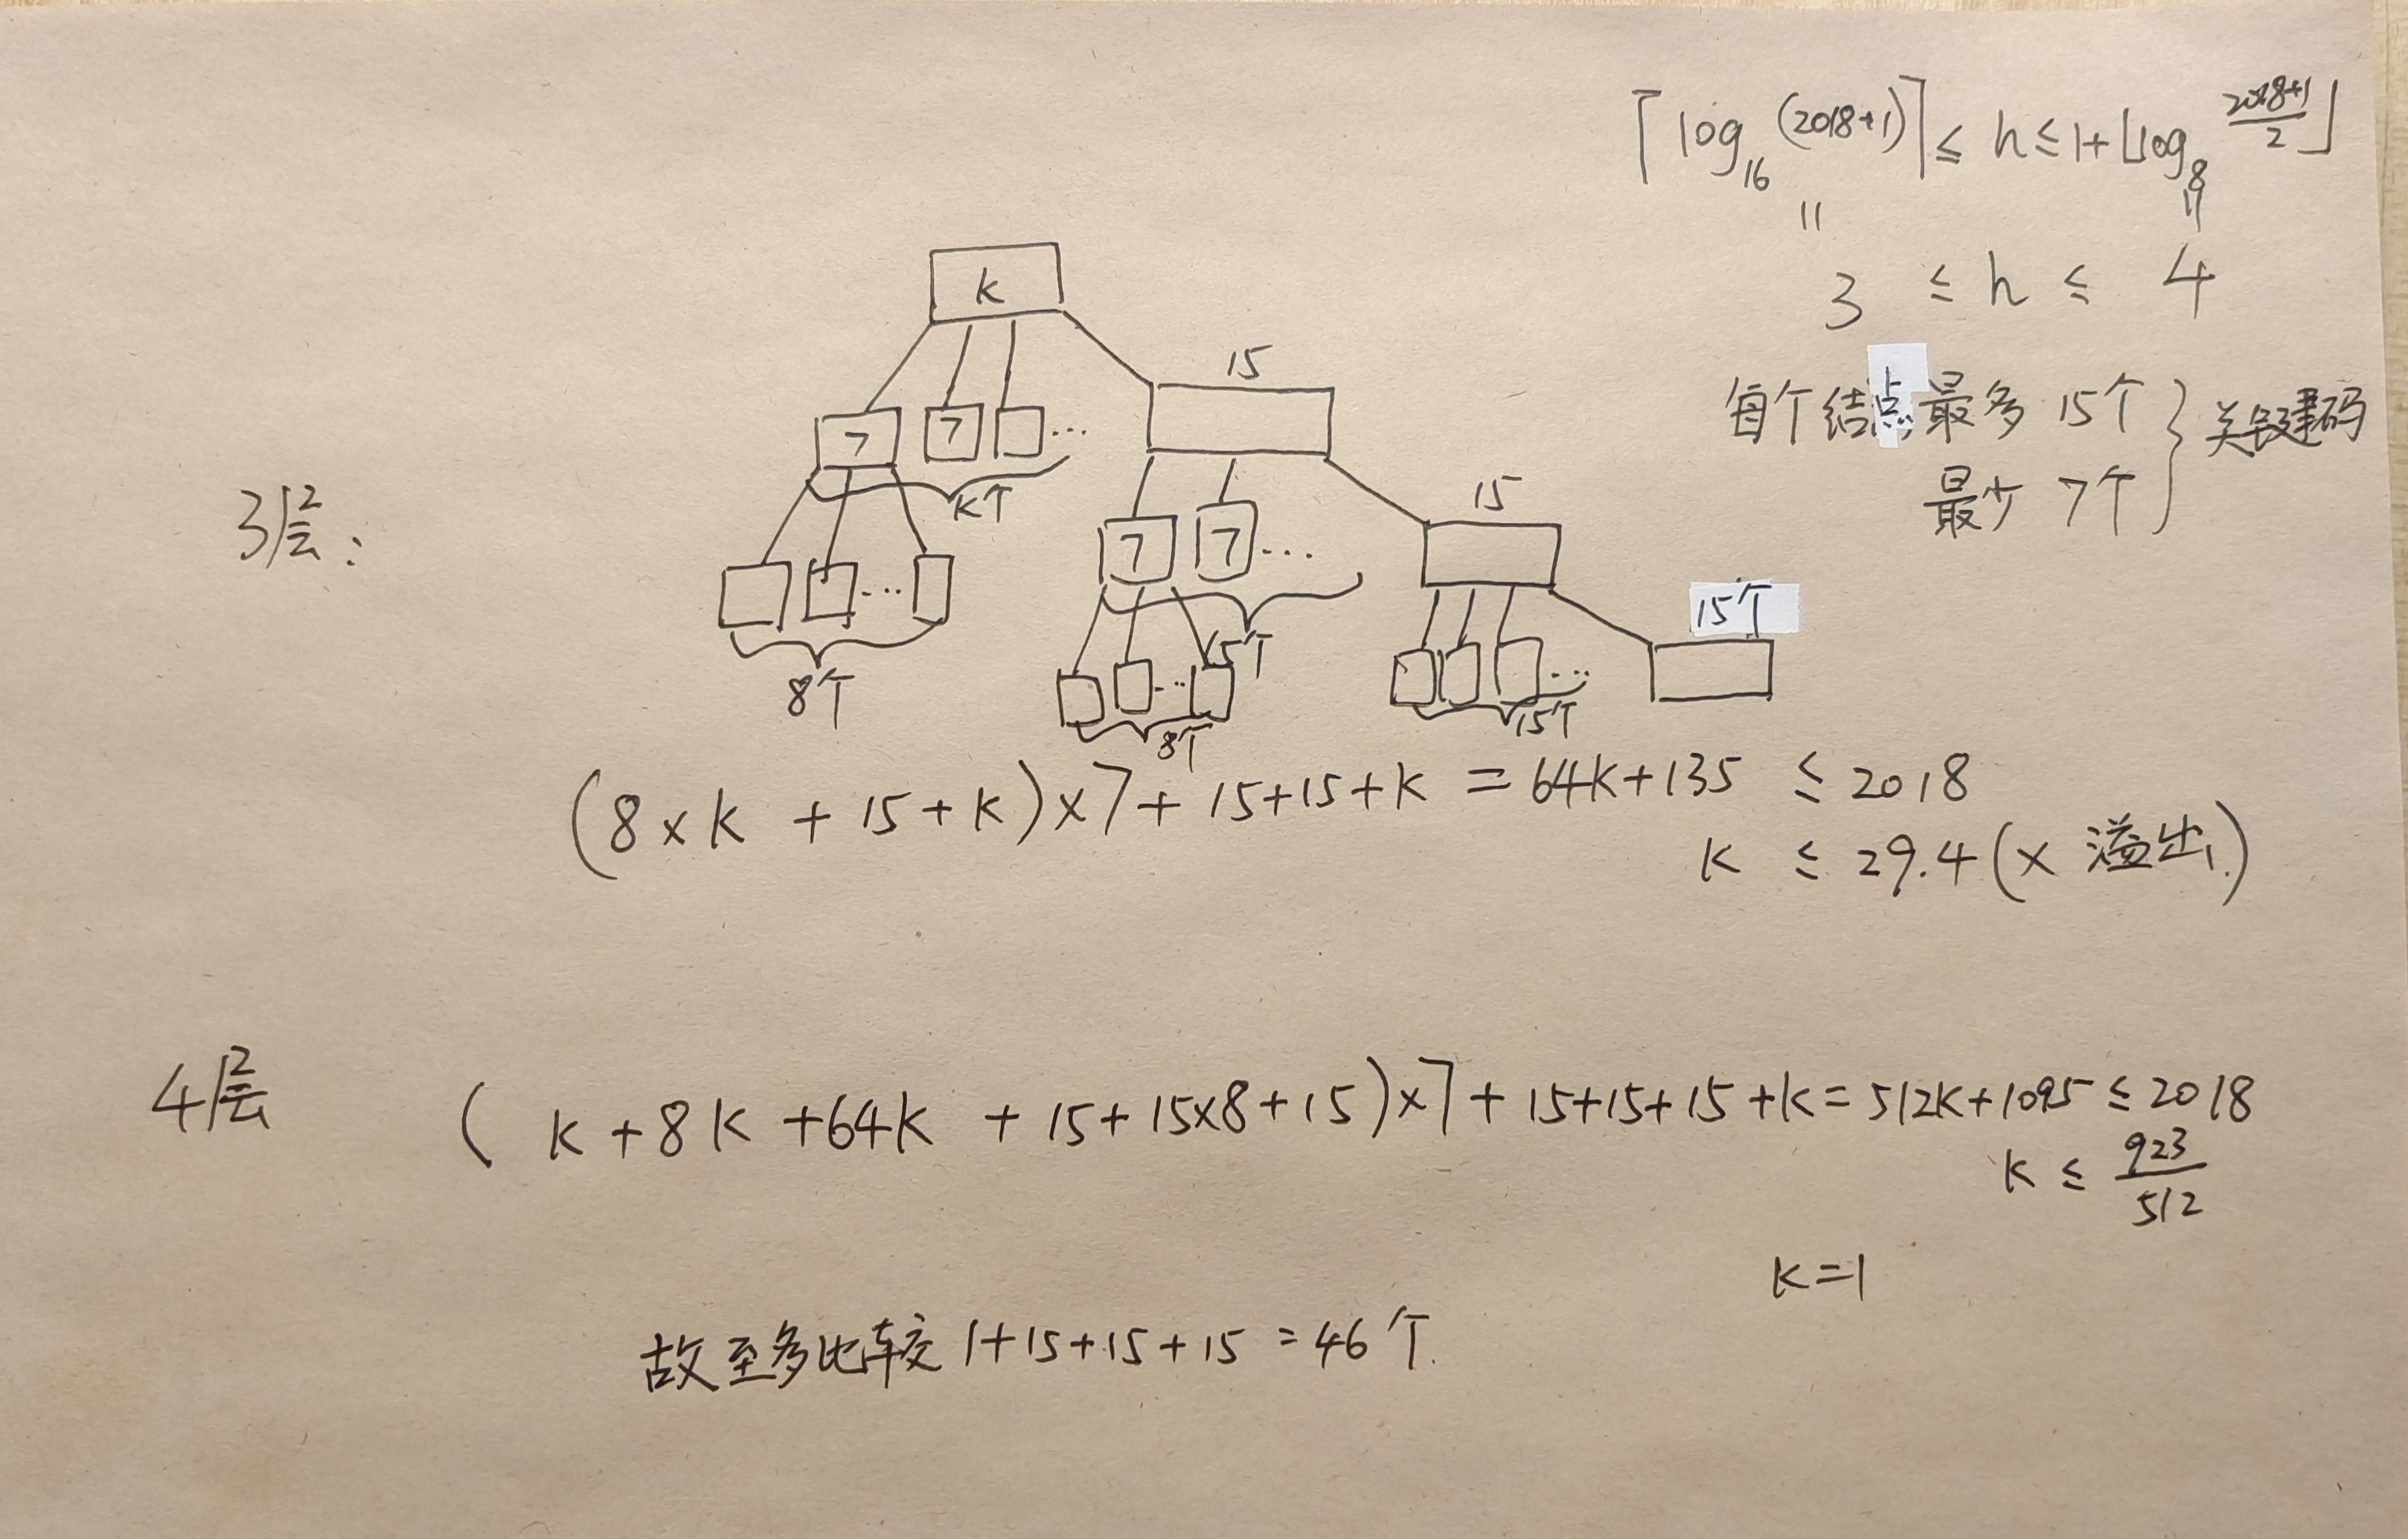 ⌈log₁₆(2018+1)⌉ ≤ h ≤ 1+⌊log₈ (2018+1)/2⌋
॥ ॥
3 ≤ h ≤ 4
每个结点最多 15个 } 关键码
最少 7个
3层：
k
15
7 7 ...
k个
15
7 7 ...
15个
... 15个
8个
... 15个
8个
(8×k + 15+k)×7+ 15+15+k = 64k+135 ≤ 2018
k ≤ 29.4 (× 溢出)
4层
( k+8k+64k + 15+15×8+15)×7+ 15+15+15+k=512k+1095 ≤ 2018
k ≤ 923/512
k=1
故至多比较 1+15+15+15 = 46个.